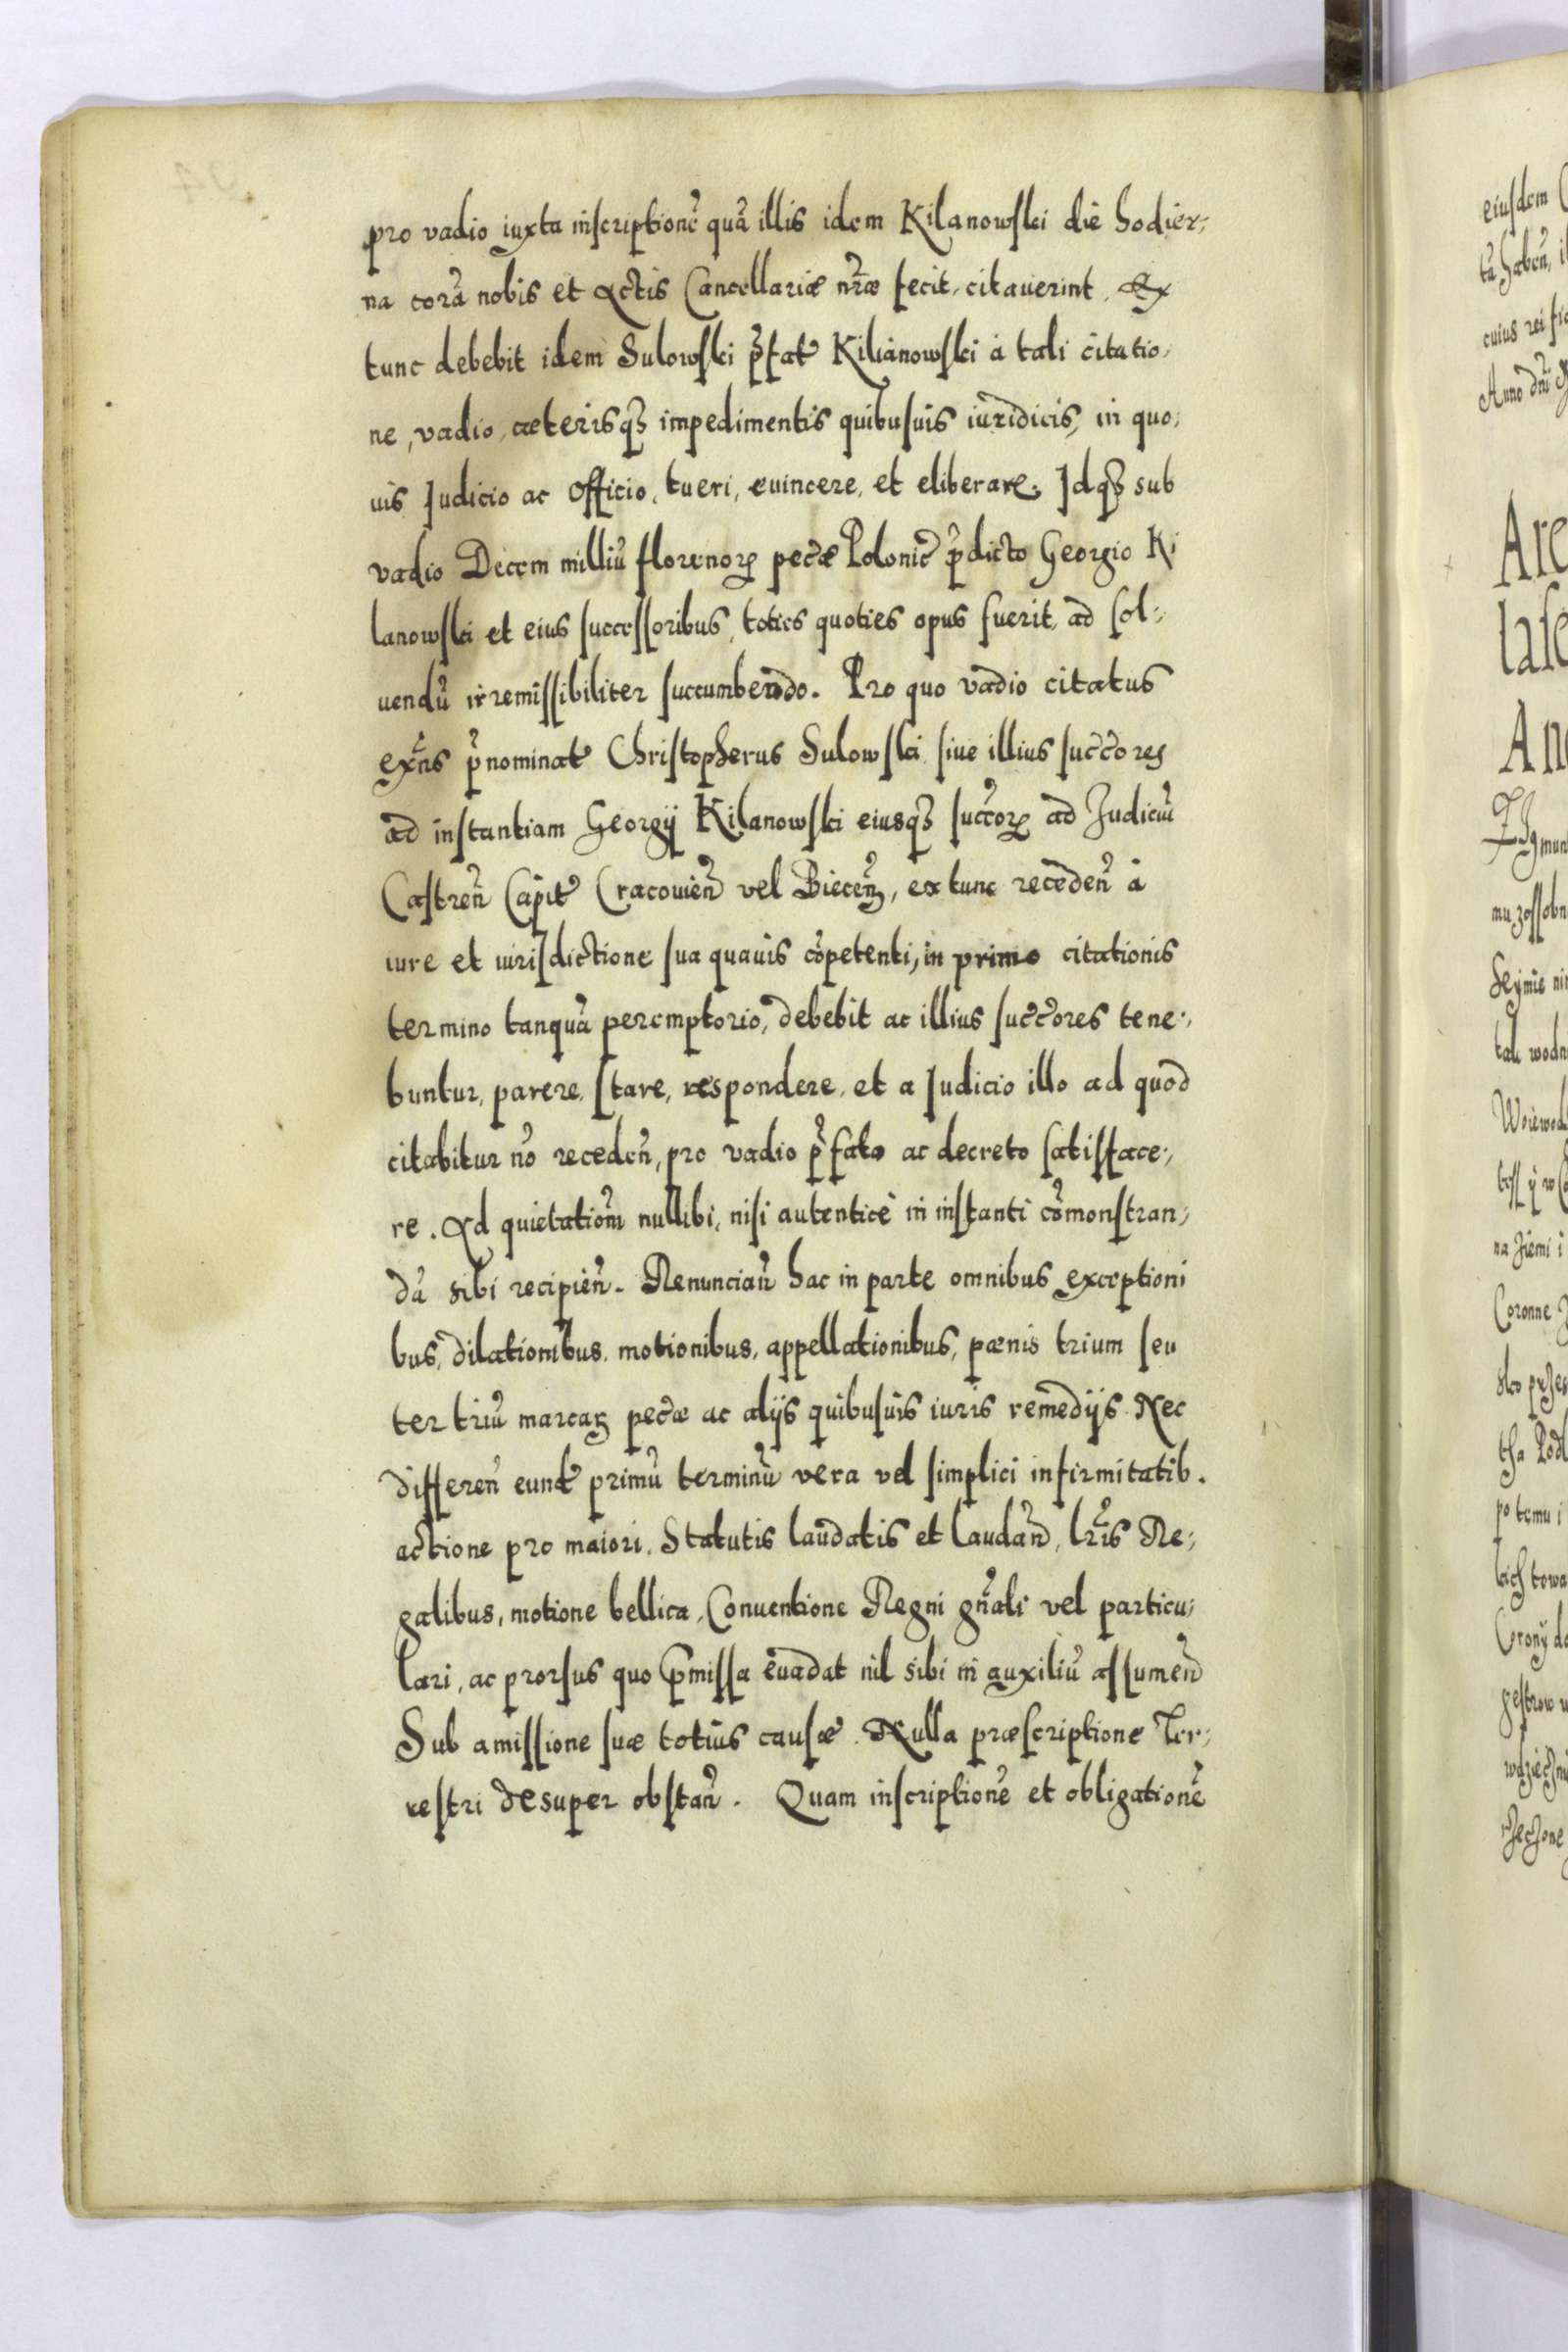 pro vadio iuxta inscriptionē quā illis idem Kilanowski die hodier-
na corā nobis et Actis Cancellariæ nr̄æ fecit, citauerint. Ex
tunc debebit idem Sulowski p̄fat⁹ Kilianowski à tali citatio-
ne, vadio, cæterisqȝ impedimentis quibusuis iuridicis, in quo-
uis Judicio ac Officio, tueri, euincere, et eliberare. Idqȝ sub
vadio Decem milliū florenorꝝ pecc̄æ Polonic̄ p̄dicto Georgio Ki
lanowski et eius successoribus, toties quoties opus fuerit, ad sol-
uendū irremissibiliter succumbendo. Pro quo vadio citatus
exn̄s p̄nominat⁹ Christopherus Sulowski siue illius succ̄ores
ad instantiam Georgij Kilanowski eiusqȝ succ̄orꝝ ad Judiciū
Castren̄ Capit⁹ Cracouien̄ vel Biecen̄, ex tunc receden̄ à
iure et iurisdictione sua quauis cōpetenti, in primo citationis
termino tanquā peremptorio, debebit ac illius succ̄ores tene-
buntur, parere, stare, respondere, et a Judicio illo ad quod
citabitur nō receden̄, pro vadio p̄fato ac decreto satisface-
re. Ad quietation̄m nullibi, nisi autenticè in instanti cōmonstran-
dā sibi recipien̄. Renuncian̄ hac in parte omnibus exceptioni
bus, dilationibus, motionibus, appellationibus, pænis trium seu
ter triū marcarꝝ pecc̄æ ac alijs quibusuis iuris remedijs. Nec
differen̄ eund̄ primū terminū vera vel simplici infirmitatib.
actione pro maiori, Statutis laudatis et laudan̄d, lr̄is Re-
galibus, motione bellica, Conuentione Regni gn̄ali vel particu-
lari, ac prorsus quo p̄missa euadat nil sibi in auxiliū assumen̄d
Sub amissione suæ totius causæ. Nulla præscriptione Ter-
restri desuper obstan̄. Quam inscriptionē et obligationē